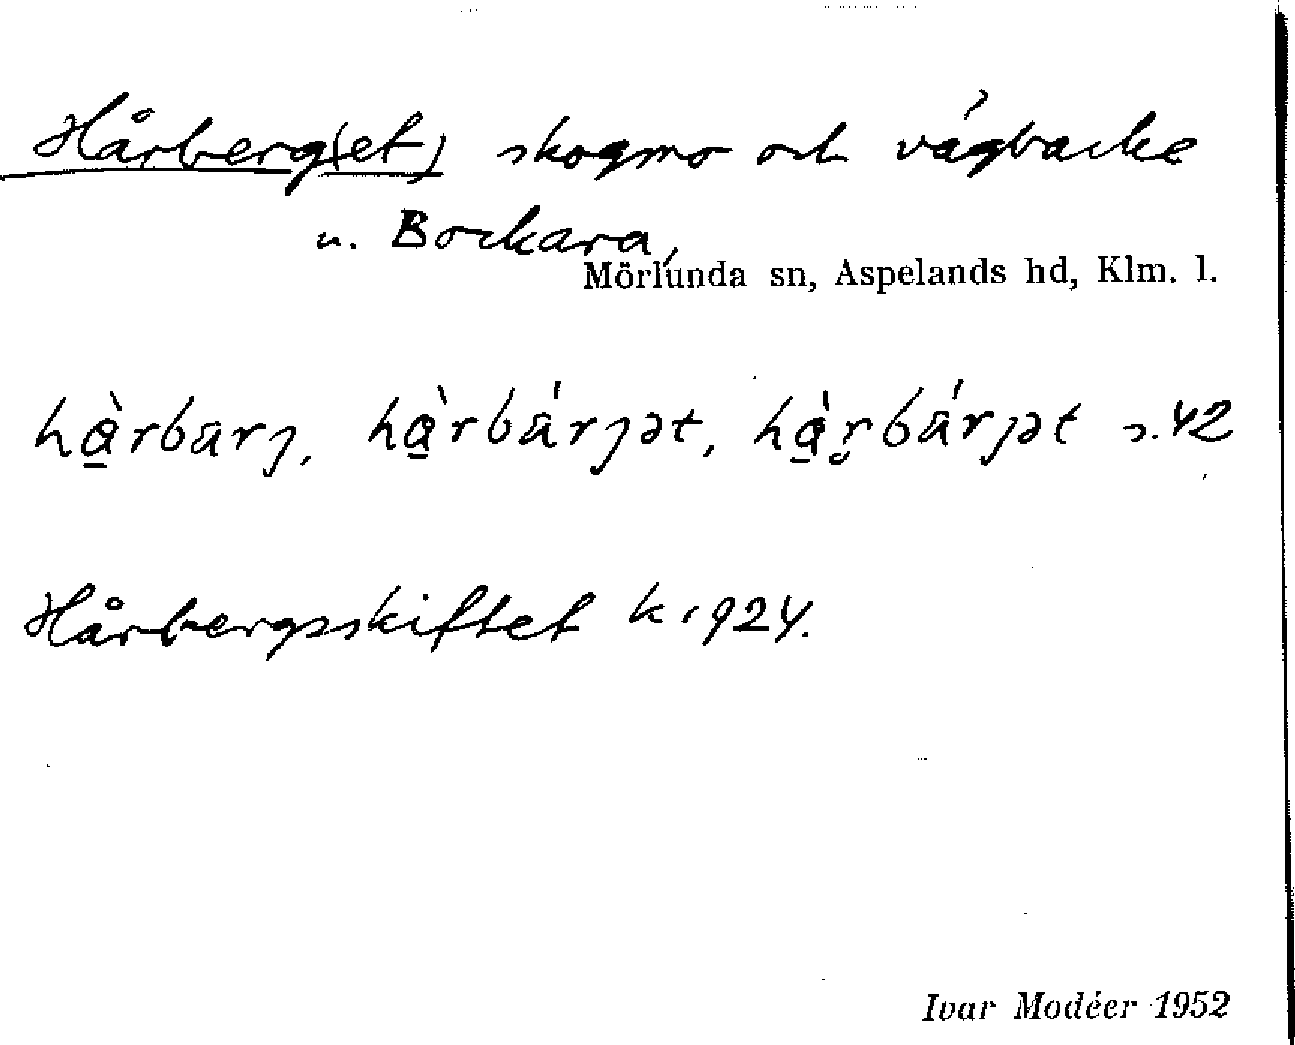 Hårberg(et) skogmo och vägbacke
u. Bockara,
Mörlunda sn, Aspelands hd, Klm. l.
hàrbarȷ, hàrbárȷət, hàr̥bárȷət s. 42
Hårbergsskiftet k 1924.
Ivar Modéer 1952